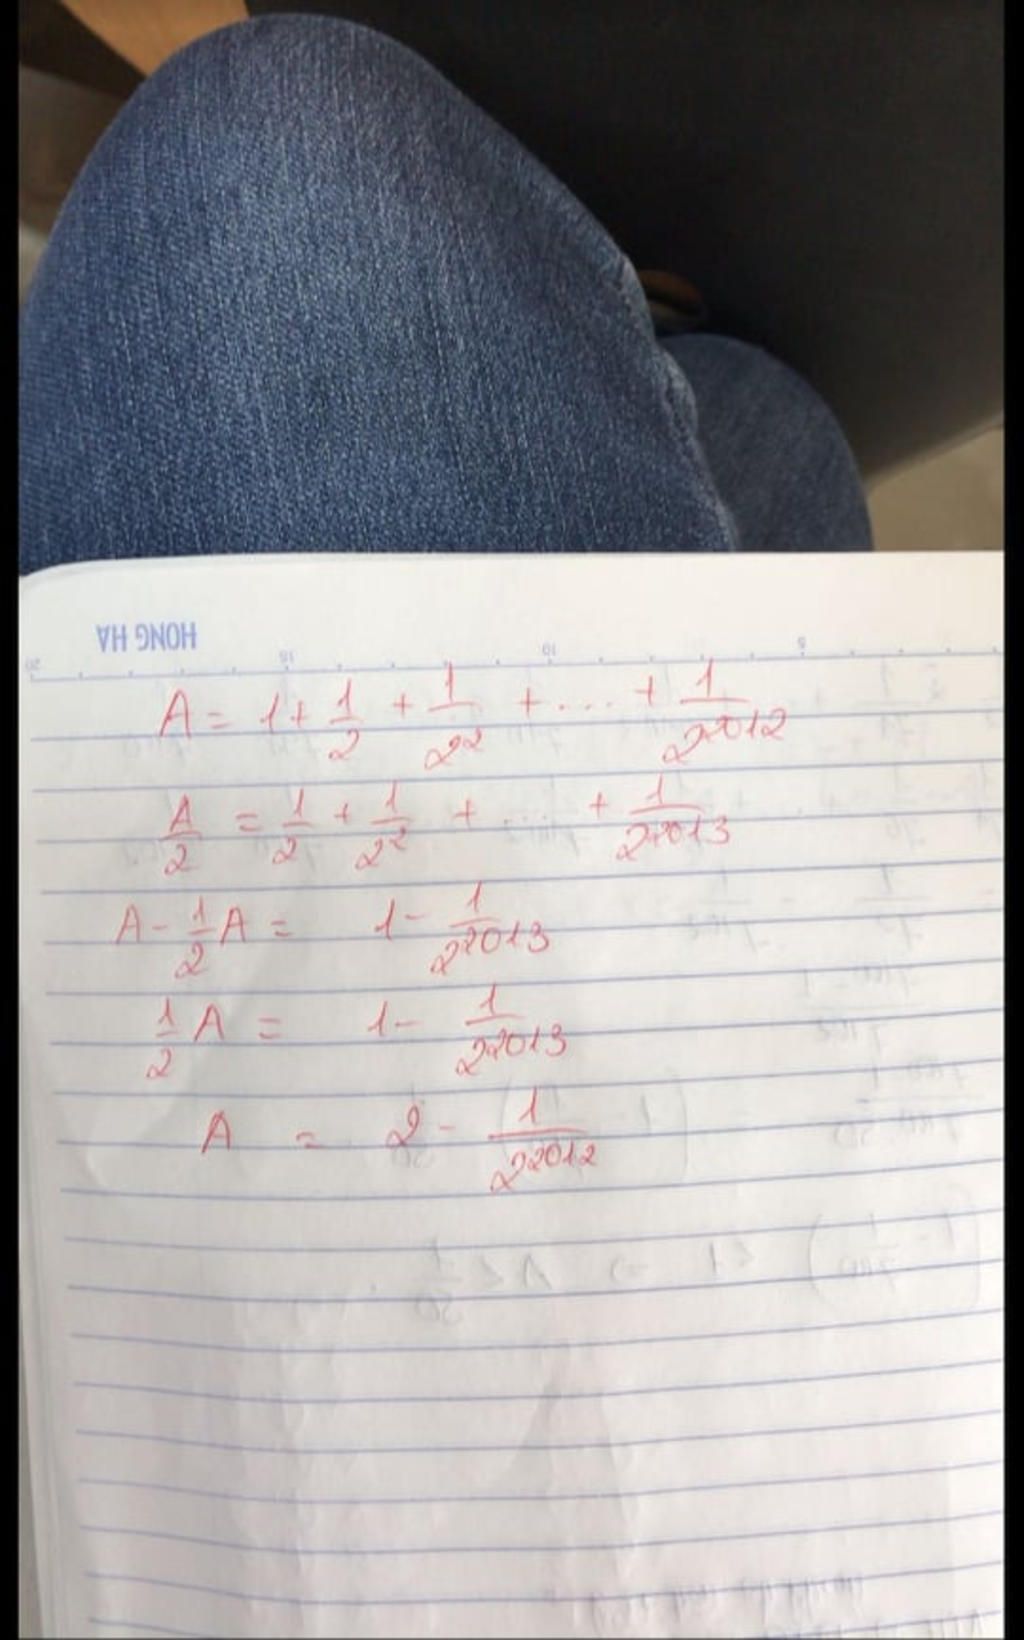 HONG HA
20 15 10 5
A = 1 + 1/2 + 1/2^2 + ... + 1/2^2012
A/2 = 1/2 + 1/2^2 + ... + 1/2^2013
A - 1/2 A = 1 - 1/2^2013
1/2 A = 1 - 1/2^2013
A = 2 - 1/2^2012